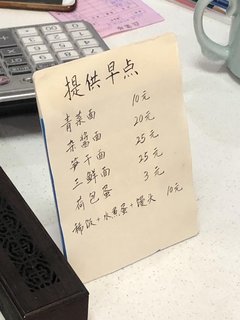 提供早点
青菜面 10元
杂酱面 20元
笋干面 25元
三鲜面 25元
荷包蛋 3元
稀饭+水煮蛋+馒头 10元